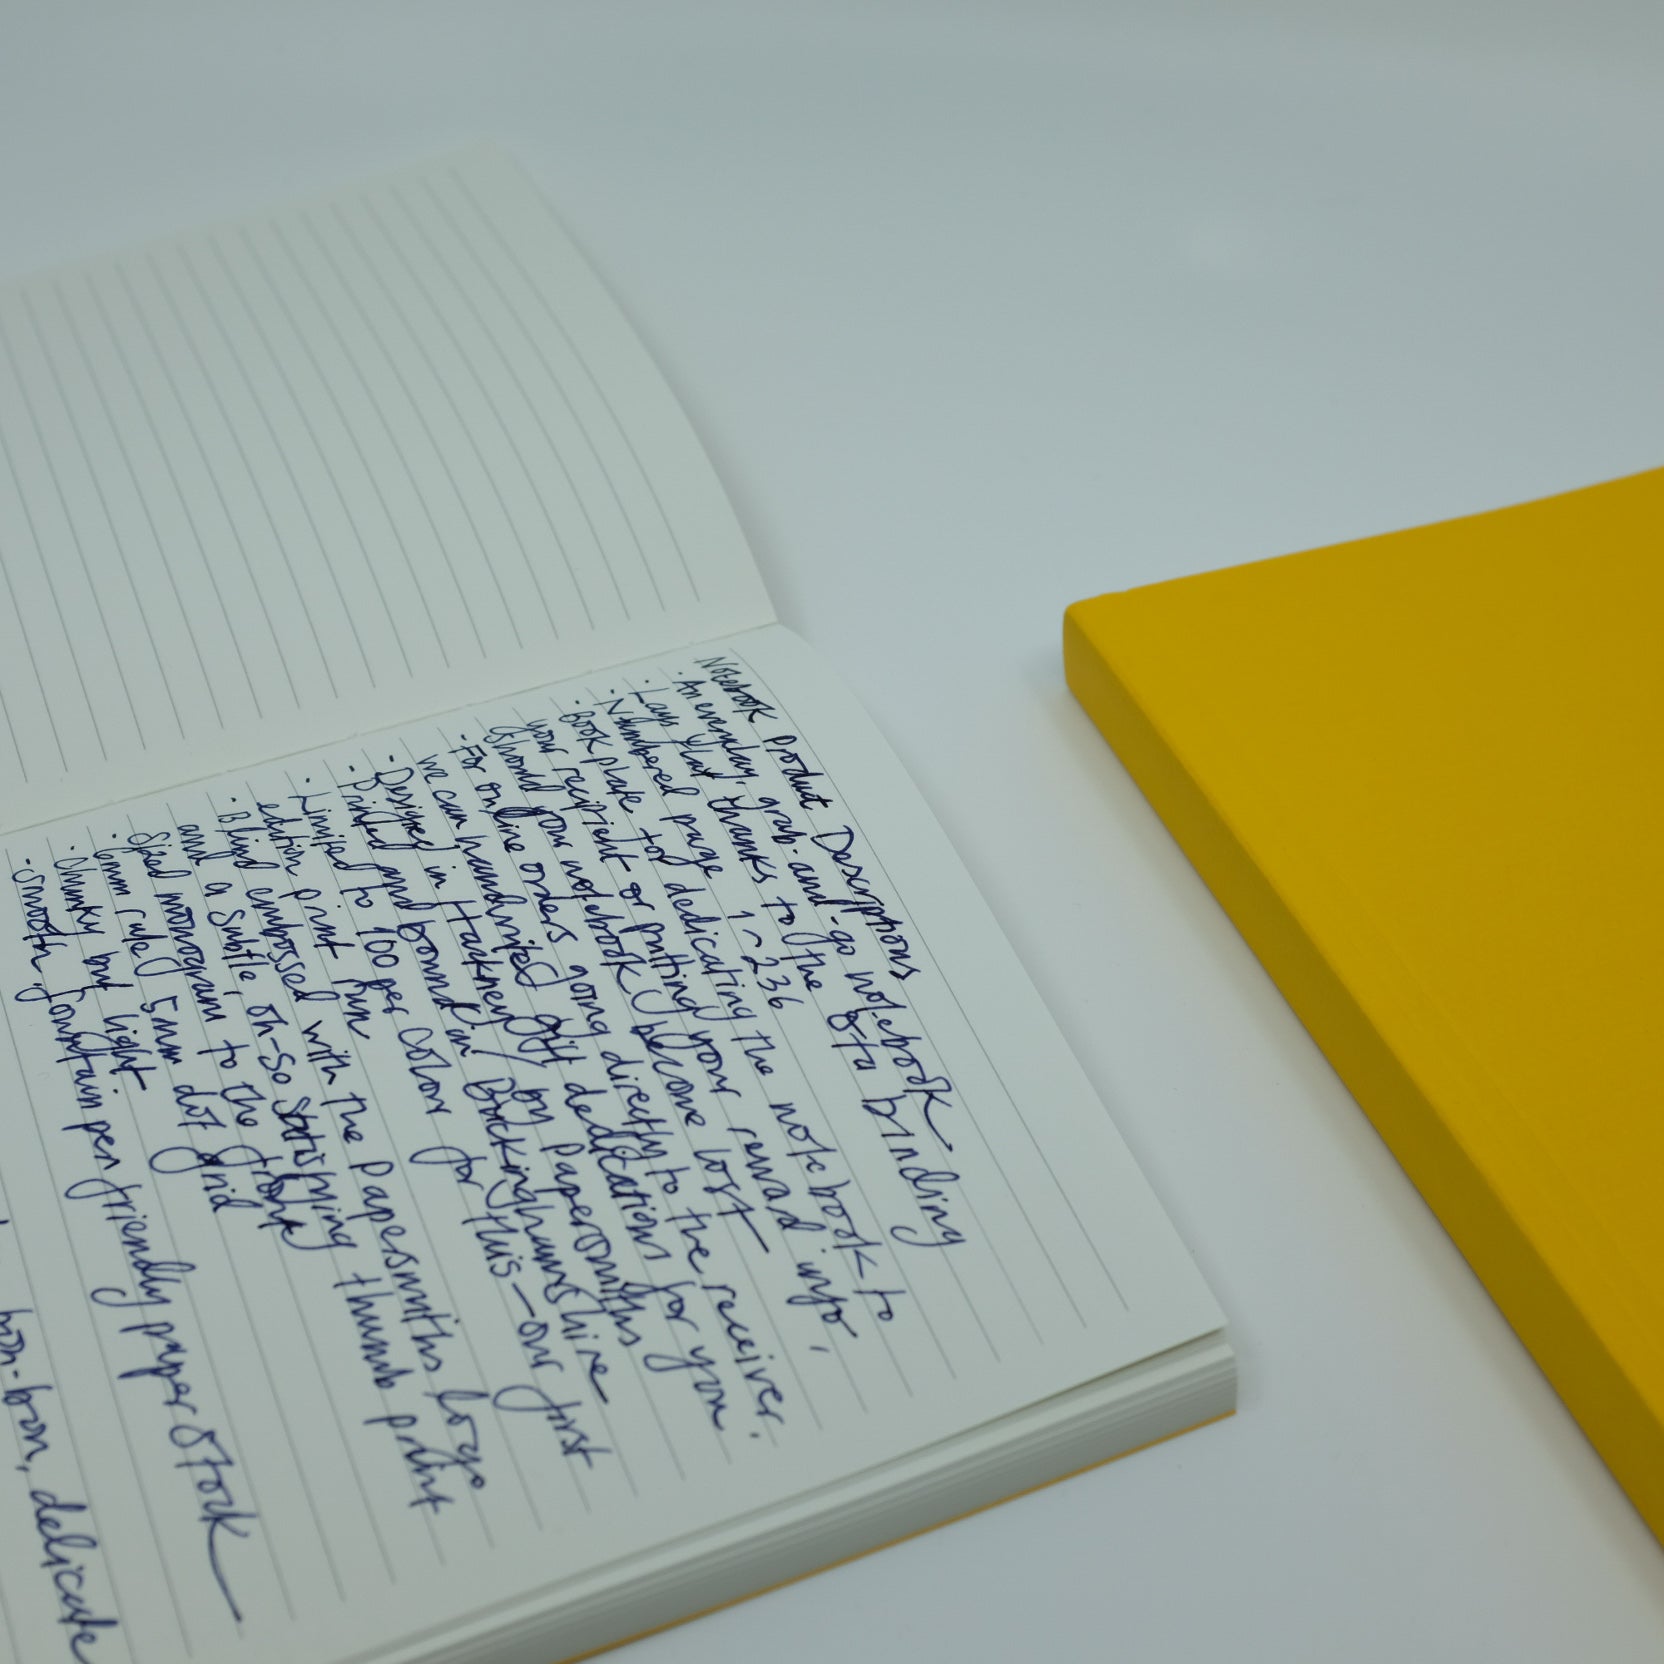 Notebook Product Descriptions
· An everyday, grab-and-go notebook
· Lays flat thanks to the Ota binding
· Numbered page 1~236
· Book plate for dedicating the notebook to
your recipient or putting your reward info,
should your notebook become lost
· For online orders going directly to the receiver.
we can handwrited gift dedications for you
· Designed in Hackney by Papersmiths
· Printed and bound in Buckinghamshire
· Limited to 100 per colour for this – our first
edition print run
· Blind embossed with the Papersmiths logo
and a subtle, oh-so satisfying thumb print
sized monogram to the front
· 6mm ruled 5mm dot grid
· chunky but light
· smooth, fountain pen friendly paper stock
bon-bon, delicate